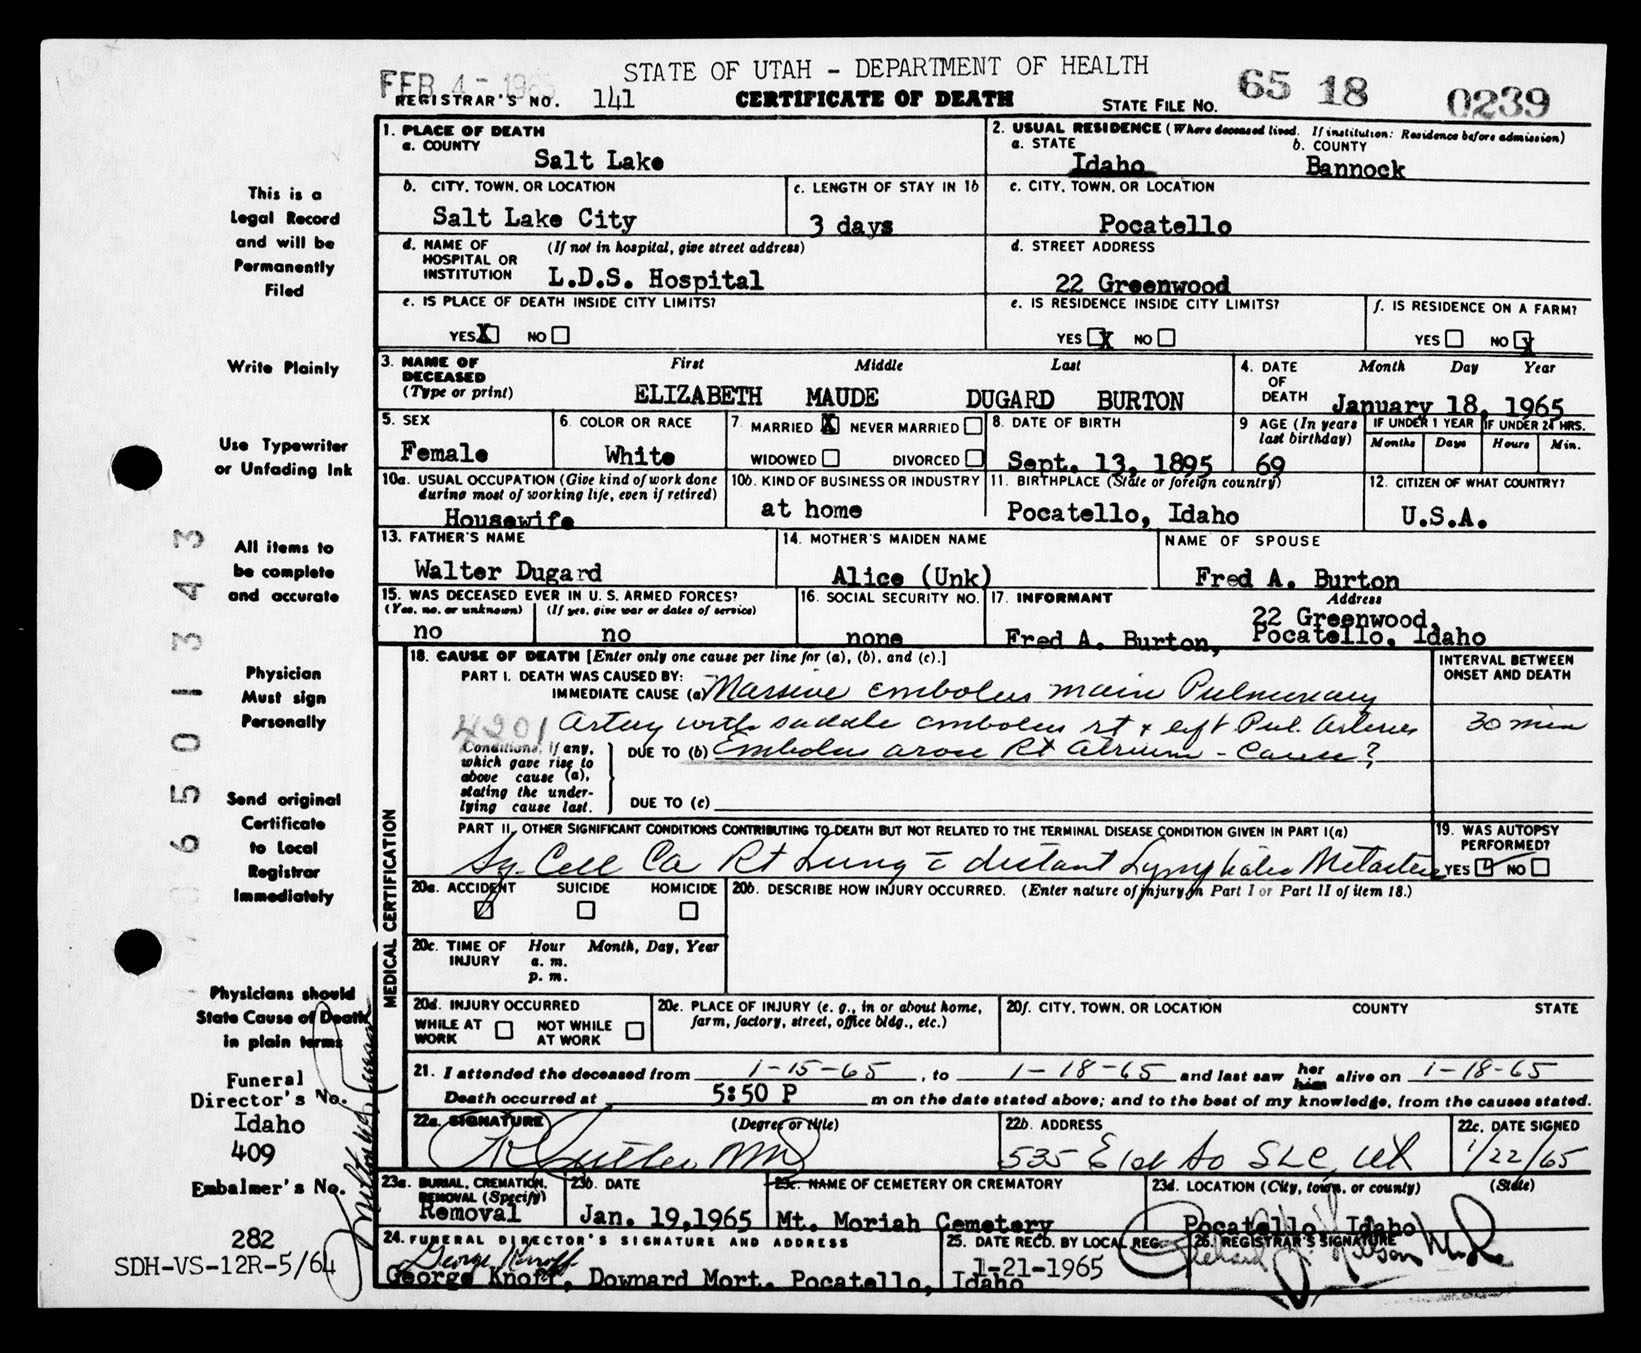 STATE OF UTAH - DEPARTMENT OF HEALTH
FEB 4 - 196
REGISTRAR'S NO. 141
CERTIFICATE OF DEATH
STATE FILE NO. 65 18 0239
1. PLACE OF DEATH
a. COUNTY
Salt Lake
2. USUAL RESIDENCE (Where deceased lived. If institution: Residence before admission)
a. STATE
Idaho
b. COUNTY
Bannock
b. CITY, TOWN, OR LOCATION
Salt Lake City
c. LENGTH OF STAY IN 1b
3 days
c. CITY, TOWN, OR LOCATION
Pocatello
d. NAME OF HOSPITAL OR INSTITUTION
(If not in hospital, give street address)
L.D.S. Hospital
d. STREET ADDRESS
22 Greenwood
e. IS PLACE OF DEATH INSIDE CITY LIMITS?
YES X NO
e. IS RESIDENCE INSIDE CITY LIMITS?
YES X NO
f. IS RESIDENCE ON A FARM?
YES NO X
3. NAME OF DECEASED
(Type or print)
First Middle Last
ELIZABETH MAUDE DUGARD BURTON
4. DATE OF DEATH
Month Day Year
January 18, 1965
5. SEX
Female
6. COLOR OR RACE
White
7. MARRIED X NEVER MARRIED
WIDOWED DIVORCED
8. DATE OF BIRTH
Sept. 13, 1895
9 AGE (In years last birthday)
69
IF UNDER 1 YEAR
Months Days
IF UNDER 24 HRS.
Hours Min.
10a. USUAL OCCUPATION (Give kind of work done
during most of working life, even if retired)
Housewife
10b. KIND OF BUSINESS OR INDUSTRY
at home
11. BIRTHPLACE (State or foreign country)
Pocatello, Idaho
12. CITIZEN OF WHAT COUNTRY?
U.S.A.
13. FATHER'S NAME
Walter Dugard
14. MOTHER'S MAIDEN NAME
Alice (Unk)
NAME OF SPOUSE
Fred A. Burton
15. WAS DECEASED EVER IN U. S. ARMED FORCES?
(Yes, no, or unknown) (If yes, give war or dates of service)
no no
16. SOCIAL SECURITY NO.
none
17. INFORMANT
Address
Fred A. Burton,
22 Greenwood,
Pocatello, Idaho
18. CAUSE OF DEATH [Enter only one cause per line for (a), (b), and (c).]
INTERVAL BETWEEN ONSET AND DEATH
PART I. DEATH WAS CAUSED BY:
IMMEDIATE CAUSE (a) Massive embolus main Pulmonary
4201 Artery with saddle embolus rt + left Pul. Arteries
30 min
Conditions, if any, which gave rise to above cause (a), stating the underlying cause last.
DUE TO (b) Embolus arose Rt Atrium - Cause?
DUE TO (c)
PART II. OTHER SIGNIFICANT CONDITIONS CONTRIBUTING TO DEATH BUT NOT RELATED TO THE TERMINAL DISEASE CONDITION GIVEN IN PART I(a)
Sq. Cell Ca Rt Lung c distant Lymphatic Metastases
19. WAS AUTOPSY PERFORMED?
YES NO
20a. ACCIDENT SUICIDE HOMICIDE
20b. DESCRIBE HOW INJURY OCCURRED. (Enter nature of injury in Part I or Part II of item 18.)
20c. TIME OF INJURY
Hour Month, Day, Year
a. m.
p. m.
20d. INJURY OCCURRED
WHILE AT WORK NOT WHILE AT WORK
20e. PLACE OF INJURY (e. g., in or about home,
farm, factory, street, office bldg., etc.)
20f. CITY, TOWN, OR LOCATION COUNTY STATE
21. I attended the deceased from 1-15-65, to 1-18-65 and last saw her him alive on 1-18-65
Death occurred at 5:50 P m on the date stated above; and to the best of my knowledge, from the causes stated.
22a. SIGNATURE
(Degree or title)
MD
22b. ADDRESS
535 E 1st So SLC, Ut
22c. DATE SIGNED
1/22/65
23a. BURIAL, CREMATION, REMOVAL (Specify)
Removal
23b. DATE
Jan. 19,1965
23c. NAME OF CEMETERY OR CREMATORY
Mt. Moriah Cemetery
23d. LOCATION (City, town, or county) (State)
Pocatello, Idaho
24. FUNERAL DIRECTOR'S SIGNATURE AND ADDRESS
George Knoff
George Knoff, Downard Mort. Pocatello, Idaho
25. DATE RECD. BY LOCAL REG.
1-21-1965
26. REGISTRAR'S SIGNATURE
MEDICAL CERTIFICATION
This is a
Legal Record
and will be
Permanently
Filed
Write Plainly
Use Typewriter
or Unfading Ink
All items to
be complete
and accurate
Physician
Must sign
Personally
Send original
Certificate
to Local
Registrar
Immediately
Physicians should
State Cause of Death
in plain terms
Funeral
Director's No.
Idaho
409
Embalmer's No.
282
SDH-VS-12R-5/64
06 5 0 1 3 4 3